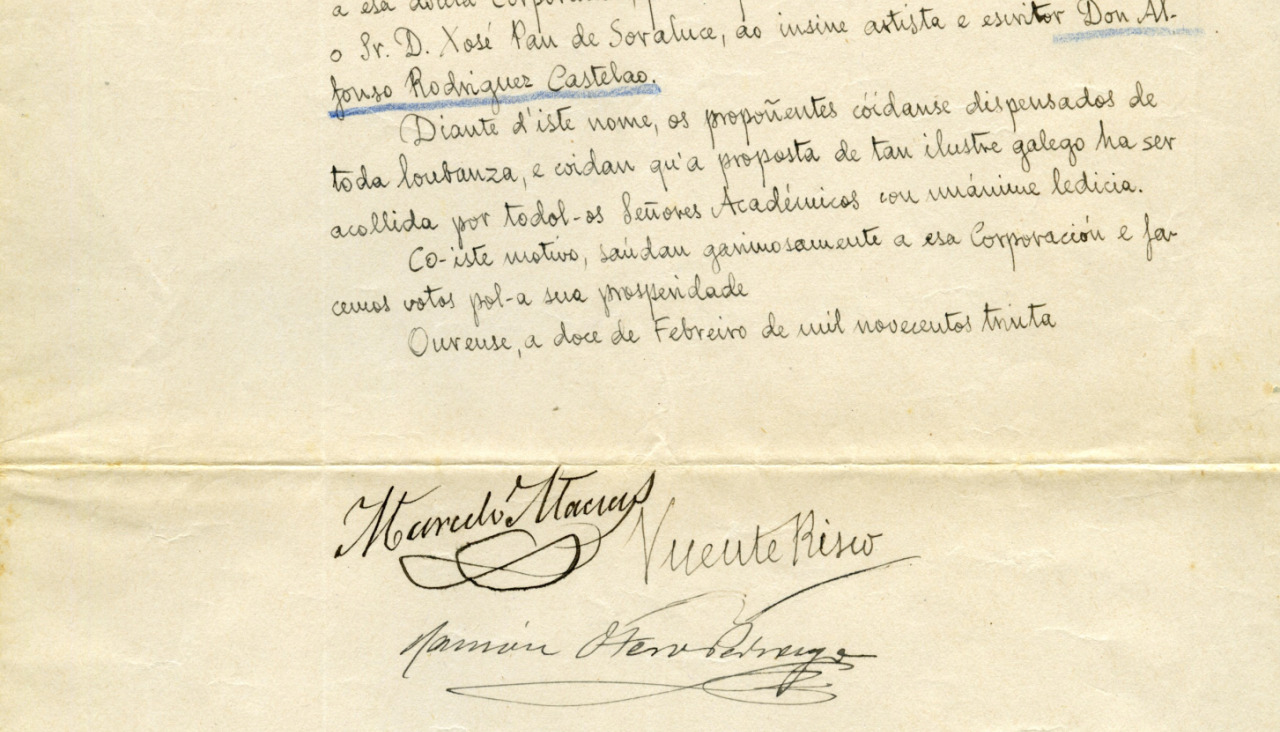 a esa docta Corporación,
o Sr. D. Xosé Pan de Soraluce, ao insine artista e escritor Don Al-
fonso Rodriguez Castelao.
Diante d'iste nome, os propoñentes cóidanse dispensados de
toda loubanza, e coidan qu'a proposta de tan ilustre galego ha ser
acollida por todol-os Señores Académicos con unánime ledicia.
Co-iste motivo, saúdan garimosamente a esa Corporación e fa-
cemos votos pol-a sua prosperidade
Ourense, a doce de Febreiro de mil novecentos trinta
Marcelo Macias
Vicente Risco
Ramón Otero Pedrayo